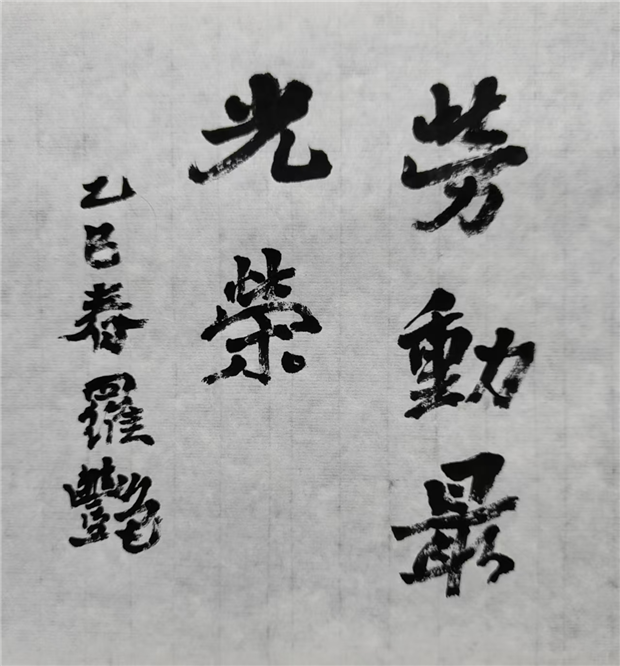 劳動最
光榮
乙巳春羅豔